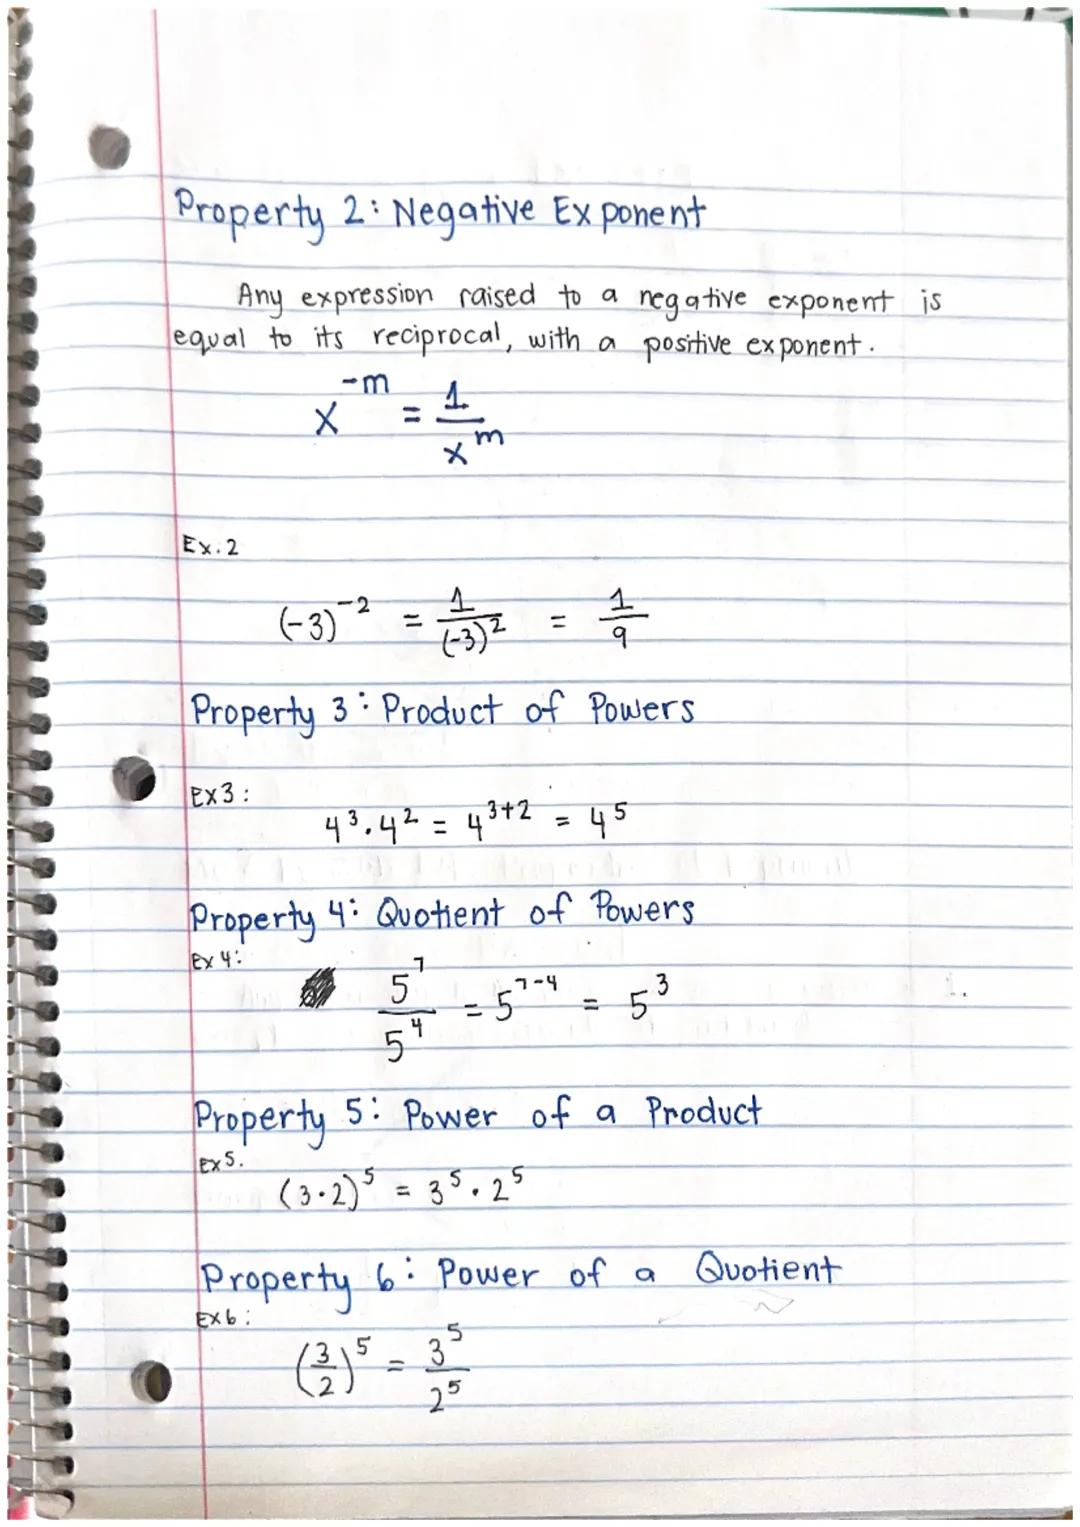 Property 2: Negative Exponent
Any expression raised to a negative exponent is
equal to its reciprocal, with a positive exponent.
x^{-m} = \frac{1}{x^m}
Ex. 2
(-3)^{-2} = \frac{1}{(-3)^2} = \frac{1}{9}
Property 3: Product of Powers
Ex3:
4^3 · 4^2 = 4^{3+2} = 4^5
Property 4: Quotient of Powers
Ex 4:
\frac{5^7}{5^4} = 5^{7-4} = 5^3
Property 5: Power of a Product
Ex5.
(3·2)^5 = 3^5 · 2^5
Property 6: Power of a Quotient
Ex6:
(\frac{3}{2})^5 = \frac{3^5}{2^5}